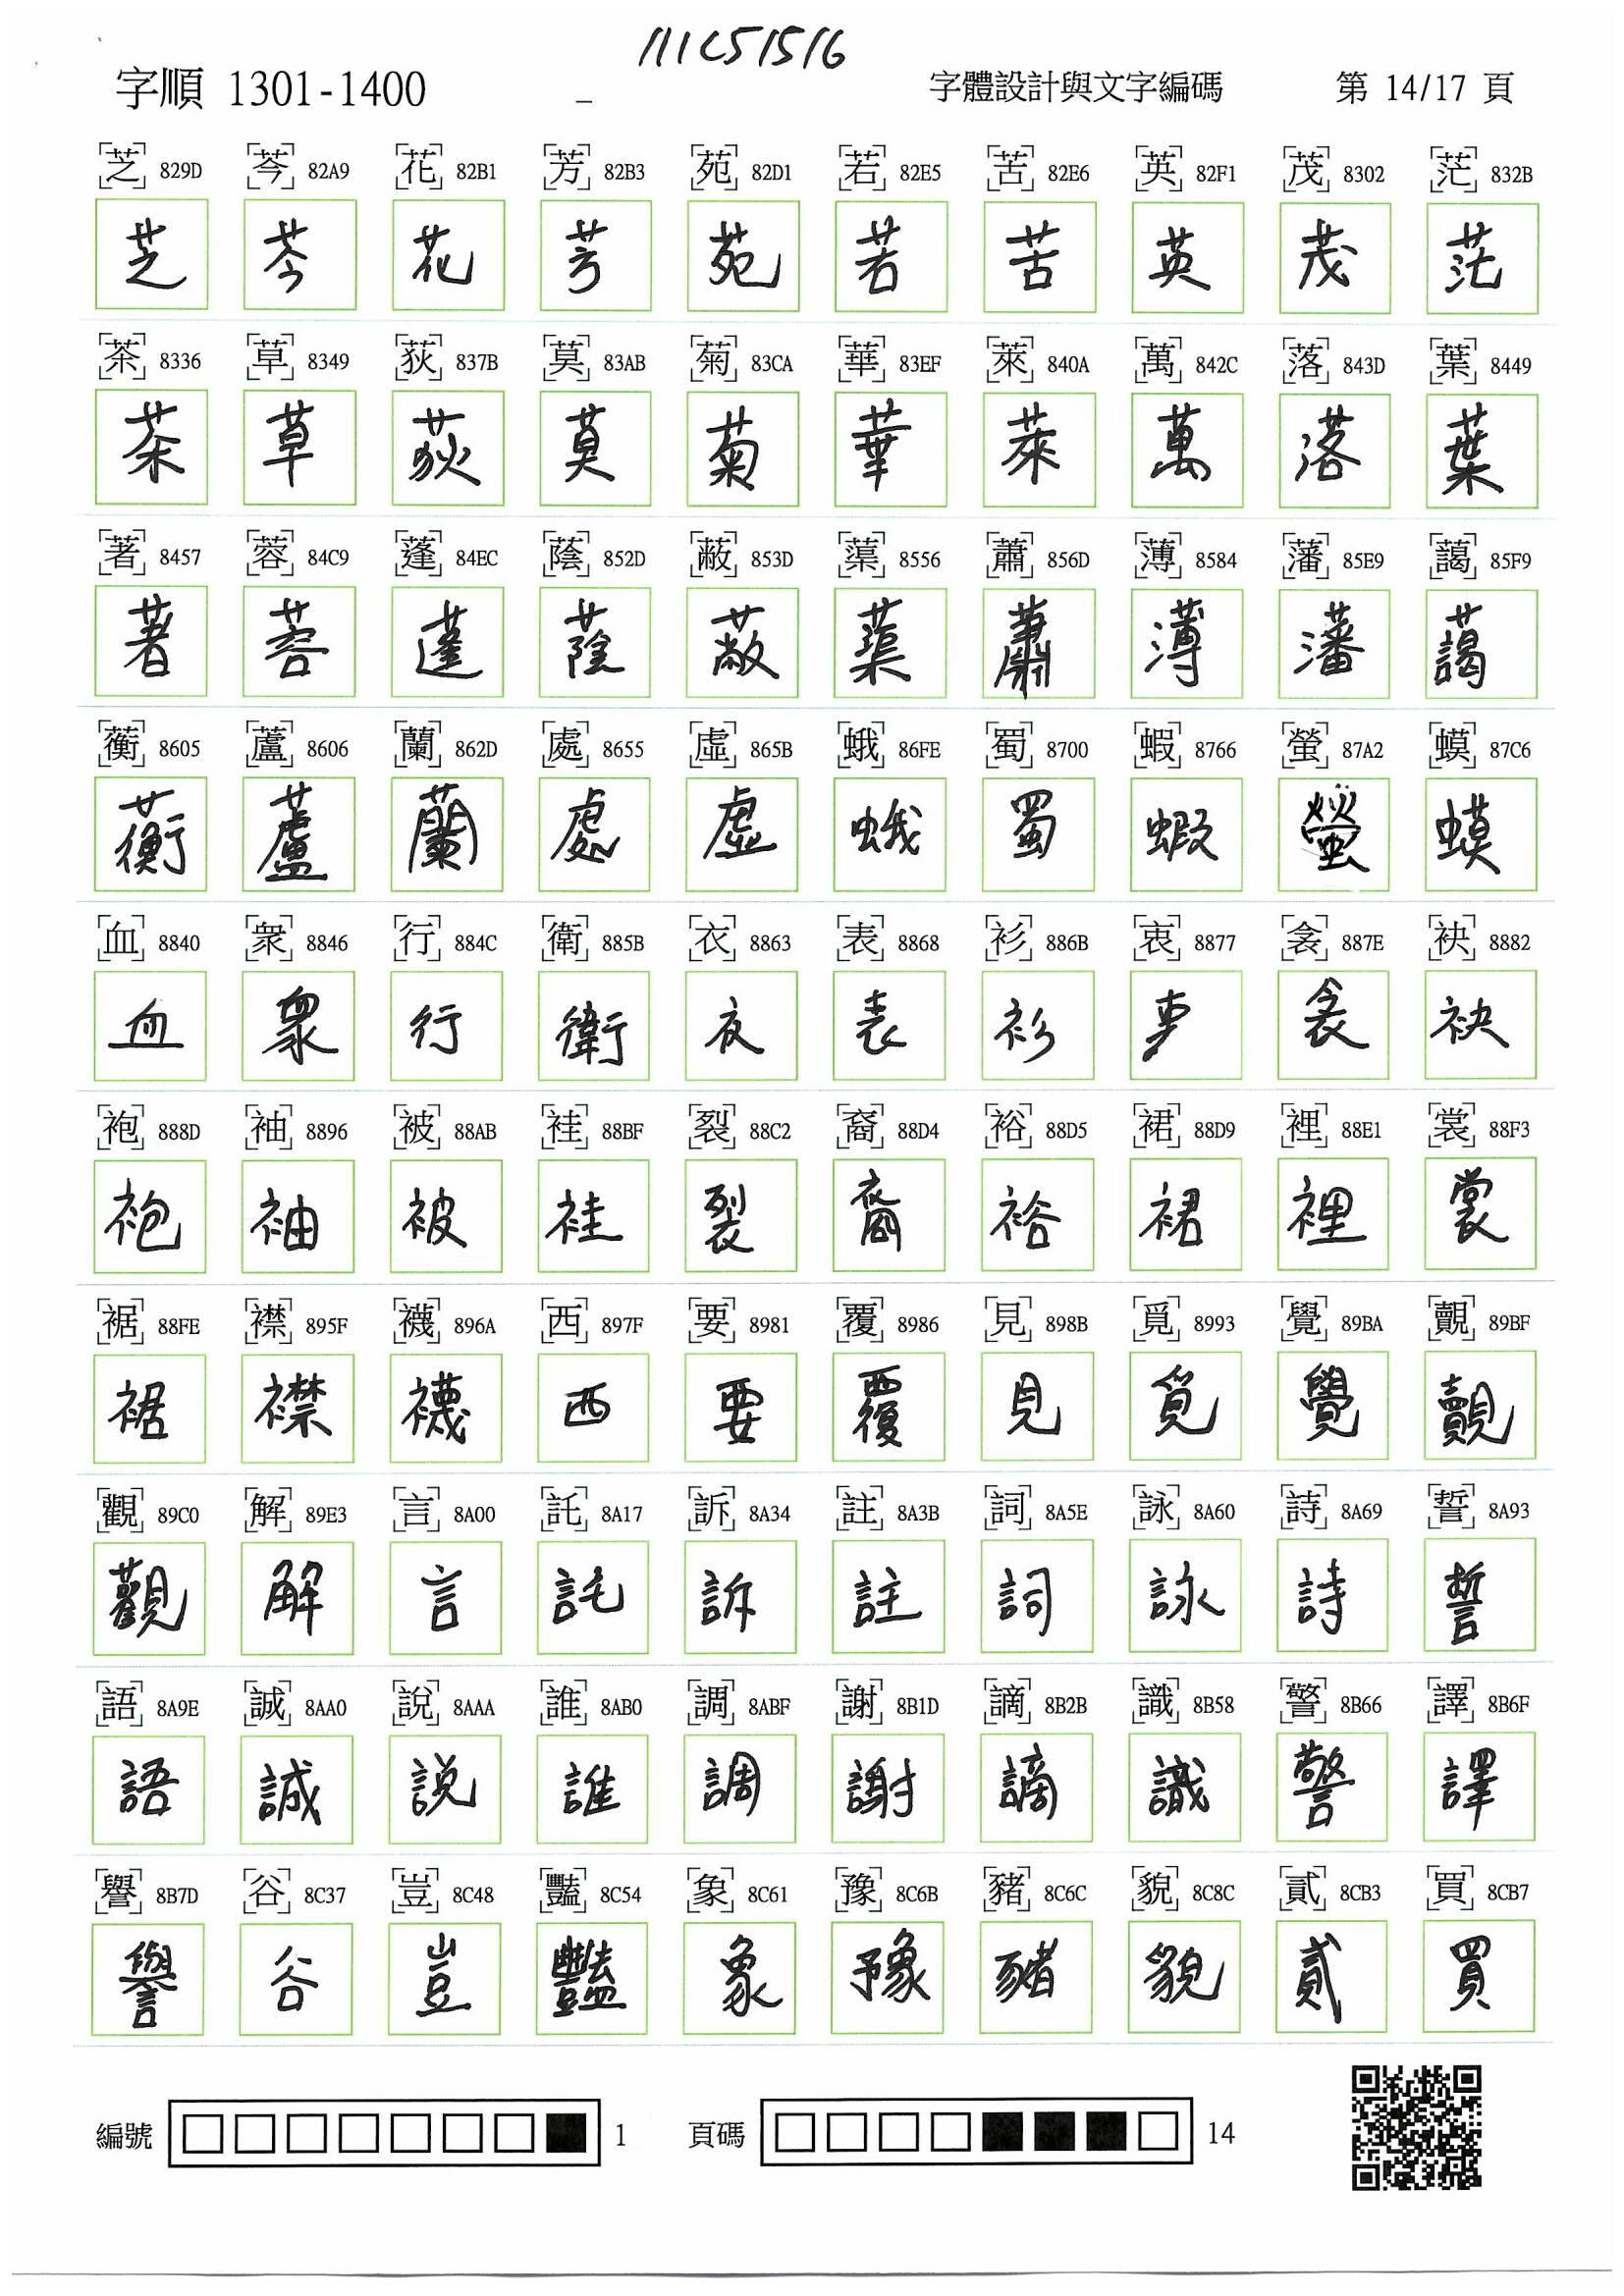 111C51516
字順 1301-1400 _ 字體設計與文字編碼 第 14/17 頁
芝 829D 芩 82A9 花 82B1 芳 82B3 苑 82D1 若 82E5 苦 82E6 英 82F1 茂 8302 茫 832B
芝 芩 花 芳 苑 若 苦 英 茂 茫
茶 8336 草 8349 荻 837B 莫 83AB 菊 83CA 華 83EF 萊 840A 萬 842C 落 843D 葉 8449
茶 草 荻 莫 菊 華 萊 萬 落 葉
著 8457 蓉 84C9 蓬 84EC 蔭 852D 蔽 853D 蕖 8556 蕭 856D 薄 8584 藩 85E9 藹 85F9
著 蓉 蓬 蔭 蔽 蕖 蕭 薄 藩 藹
蘅 8605 蘆 8606 蘭 862D 處 8655 虛 865B 蛾 86FE 蜀 8700 蝦 8766 螢 87A2 蟆 87C6
蘅 蘆 蘭 處 虛 蛾 蜀 蝦 螢 蟆
血 8840 衆 8846 行 884C 衛 885B 衣 8863 表 8868 衫 886B 衷 8877 衾 887E 袂 8882
血 衆 行 衛 衣 表 衫 衷 衾 袂
袍 888D 袖 8896 被 88AB 袿 88BF 裂 88C2 裔 88D4 裕 88D5 裙 88D9 裡 88E1 裳 88F3
袍 袖 被 袿 裂 裔 裕 裙 裡 裳
裾 88FE 襟 895F 襪 896A 西 897F 要 8981 覆 8986 見 898B 覓 8993 覺 89BA 覿 89BF
裾 襟 襪 西 要 覆 見 覓 覺 覿
觀 89C0 解 89E3 言 8A00 託 8A17 訴 8A34 註 8A3B 詞 8A5E 詠 8A60 詩 8A69 誓 8A93
觀 解 言 託 訴 註 詞 詠 詩 誓
語 8A9E 誠 8AA0 說 8AAA 誰 8AB0 調 8ABF 謝 8B1D 謫 8B2B 識 8B58 警 8B66 譯 8B6F
語 誠 說 誰 調 謝 謫 識 警 譯
譽 8B7D 谷 8C37 豈 8C48 豔 8C54 象 8C61 豫 8C6B 豬 8C6C 貌 8C8C 貳 8CB3 買 8CB7
譽 谷 豈 豔 象 豫 豬 貌 貳 買
編號 1 頁碼 14